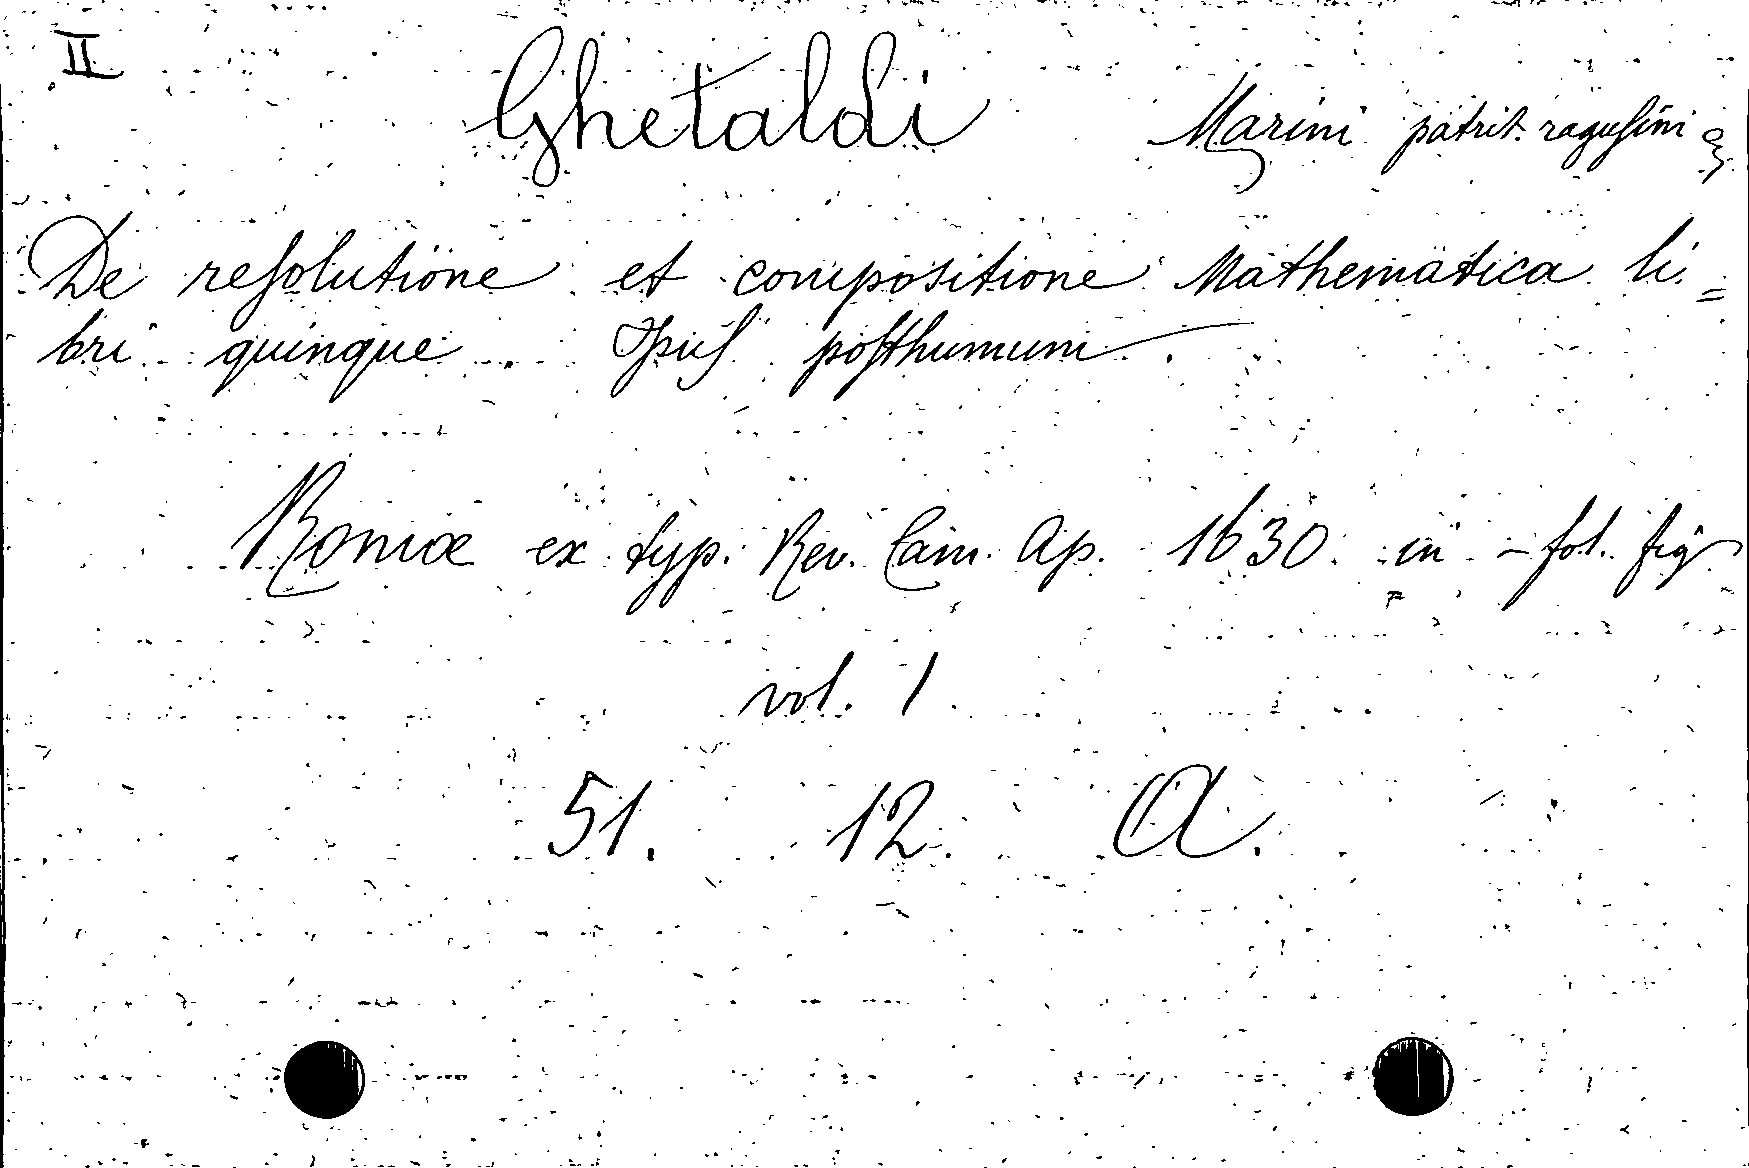 II Ghetaldi Marini patrit. ragusini
De resolutione et compositione Mathematica li=
bri quinque. Opus posthumum.
Romæ ex typ. Rev. Cam. Ap. 1630. in-fol. fig
vol. 1
51. 12. A.